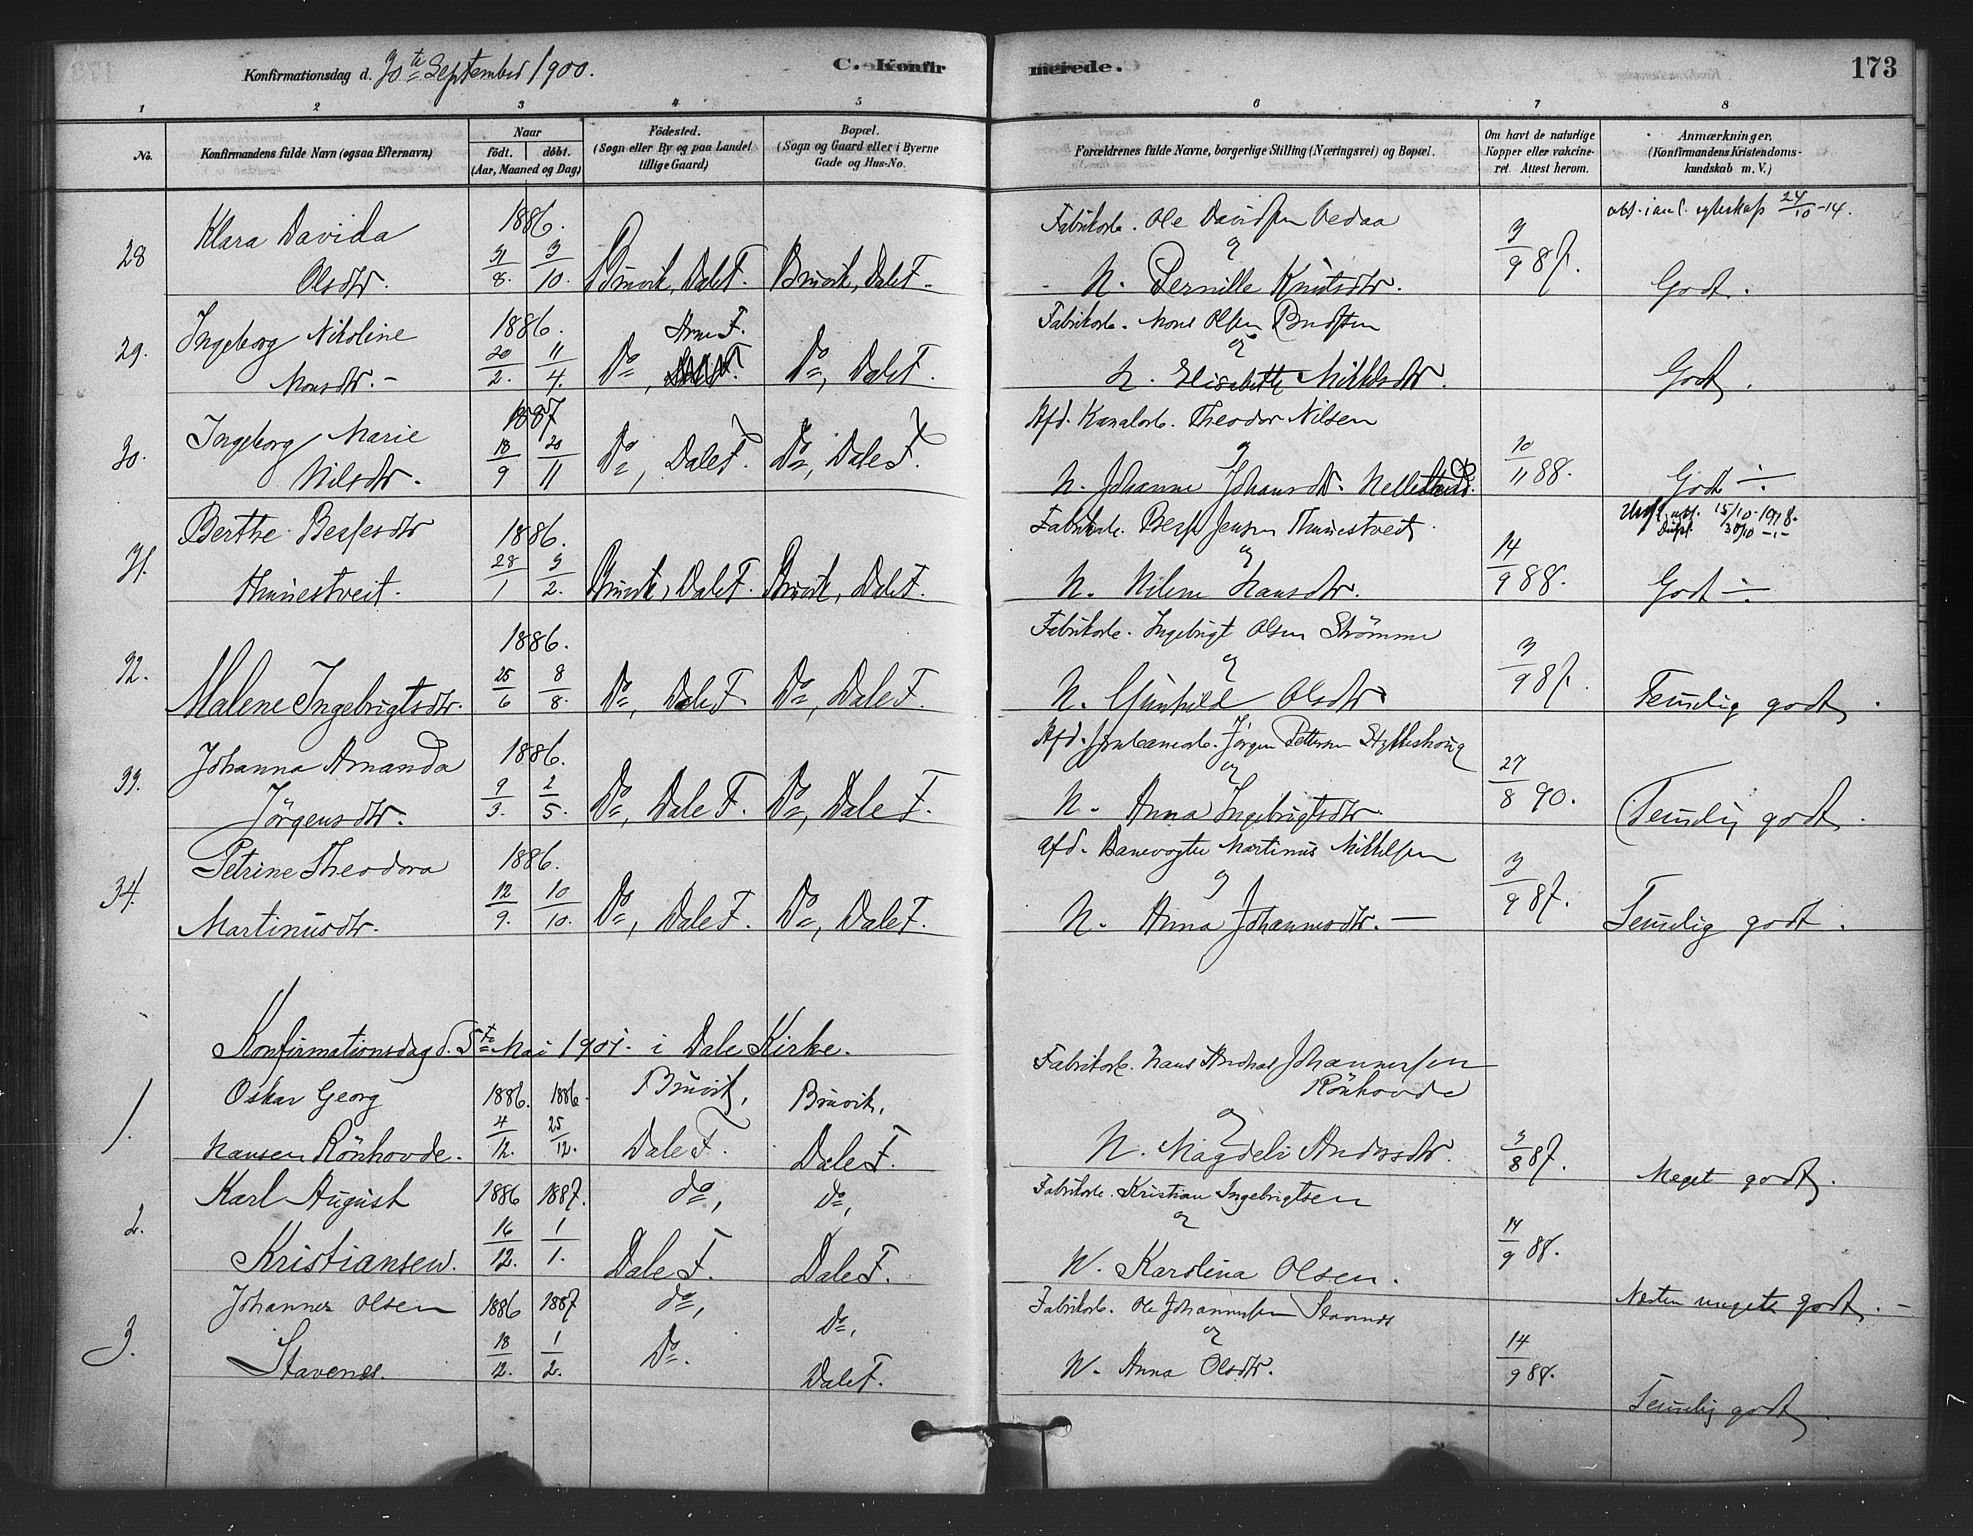 Konfirmationsdag d. 30te September 1900.
C. Konfirmerede.
173
1 2 3 4 5 6 7 8
No.
Konfirmandens fulde Navn (ogsaa Efternavn)
Naar
født. døbt.
(Aar, Maaned og Dag)
Fødested.
(Sogn eller By og paa Landet
tillige Gaard)
Bopæl.
(Sogn og Gaard eller i Byerne
Gade og Hus-No.
Forældrenes fulde Navne, borgerlige Stilling (Næringsvei) og Bopæl.
Om havt de naturlige
Kopper eller vakcine-
ret. Attest herom.
Anmærkninger.
(Konfirmandens Kristendoms-
kundskab m. V.)
28
Klara Davida
Olsdtr.
1886.
31/8. 3/10.
Bruvik, Dale F.
Bruvik, Dale F.
Fabrikarb. Ole Davidsen Vedaa
og
H. Pernille Knutsdtr.
3/9 87.
24/10-14.
Godt.
29.
Ingeborg Nikoline
Monsdtr. -
1886.
20/2. 11/4.
Arne F.
Do,
Do, Dale F.
Fabrikarb. Mons Olsen
og
H. Elisabeth Mikkelsdtr.
Godt.
30.
Ingeborg Marie
Nilsdtr.
1887
18/9 20/11
Do, Dale F.
Do, Dale F.
Afd. Kanalarb. Theodor Nilsen
og
H. Johanne Johansdtr.
10/11 88.
Godt
31.
Berthe Besfesdtr
Thunestveit.
1886.
28/1 3/2.
Bruvik, Dale F.
Bruvik, Dale F.
Fabrikarb. Jensen Thunestveit.
og
H. Nilene Hansdtr.
14/9 88.
utfl. att. 15/10-1918.
30/10
Godt
32.
Malene Ingebrigtsdtr.
1886.
25/6 8/8.
Do, Dale F.
Do, Dale F.
Fabrikarb. Ingebrigt Olsen Strömme
og
H. Gunhild Olsdtr
3/9 87.
Temelig godt.
33.
Johanna Amanda
Jörgensdtr.
1886.
9/3. 2/5.
Do, Dale F.
Do, Dale F.
Afd. Jernbanearb. Jörgen Pettersen
og
H. Anna Ingebrigtsdtr.
27/8 90.
Temelig godt.
34.
Petrine Theodora
Martinusdtr.
1886.
12/9. 10/10.
Do, Dale F.
Do, Dale F.
Afd. Banevogter Martinus Mikkelsen
og
H. Anna Johannesdtr. -
3/9 87.
Temelig godt.
Konfirmationsdag d. 5te Mai 1901. i Dale Kirke.
1.
Oskar Georg
Hansen Rönhovde.
1886. 1886.
4/12. 25/12.
Bruvik,
Dale F.
Bruvik,
Dale F.
Fabrikarb. Hans Andreas Johannessen
Rönhovde
og
H. Magdeli Andersdtr.
3/8 87.
Meget godt.
2.
Karl August
Kristiansen.
1886 1887.
16/12. 1/1.
do,
Dale F.
Do,
Dale F.
Fabrikarb. Kristian Ingebrigtsen
og
H. Karolina Olsen.
14/9 88.
Næsten meget godt. -
3.
Johannes Olsen
Stavenes.
1886 1887
18/12. 1/2.
do,
Do.
Do,
Dale F.
Fabrikarb. Ole Johannessen Stavnes
og
H. Anna Olsdtr.
14/9 88.
Temelig godt.